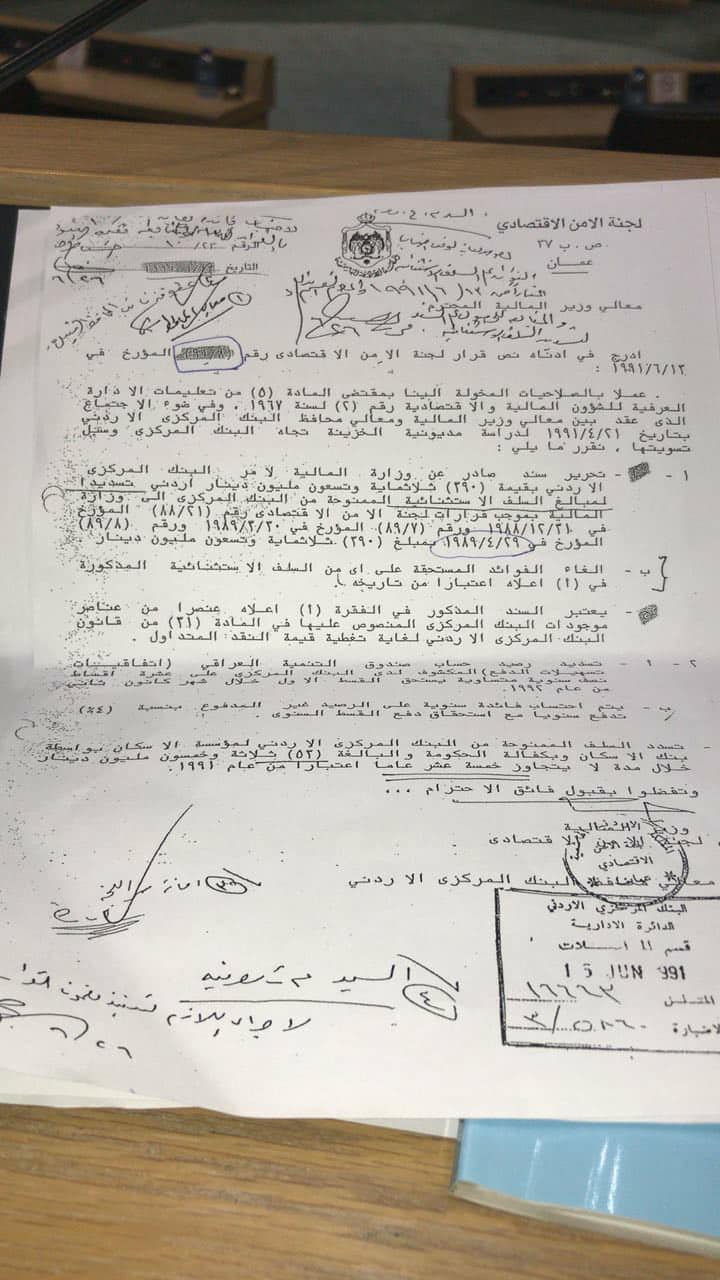 لجنة الامن الاقتصادي
ص . ب ٢٧
عمان
التاريخ
معالي وزير المالية المحترم
ادرج في ادناه نص قرار لجنة الامن الاقتصادى رقم المؤرخ في
١٩٩١/٦/١٣ :
عملا بالصلاحيات المخولة الينا بمقتضى المادة (٥) من تعليمات الادارة
العرفية للشؤون المالية والاقتصادية رقم (٢) لسنة ١٩٦٧ ، وفي ضوء الاجتماع
الذى عقد بين معالي وزير المالية ومعالي محافظ البنك المركزى الاردني
بتاريخ ١٩٩١/٤/٢١ لدراسة مديونية الخزينة تجاه البنك المركزى وسبل
تسويتها ، نقرر ما يلي :
١ - - تحرير سند صادر عن وزارة المالية لامر البنك المركزى
الاردني بقيمة (٣٩٠) ثلاثماية وتسعون مليون دينار اردني تسديدا
لمبالغ السلف الاستثنائية الممنوحة من البنك المركزى الى وزارة
المالية بموجب قرارات لجنة الامن الاقتصادى رقم (٨٨/٢١) المؤرخ
في ١٩٨٨/١٢/٣١ ورقم (٨٩/٧) المؤرخ في ١٩٨٩/٣/٢٠ ورقم (٨٩/٨)
المؤرخ في ١٩٨٩/٤/٢٩ بمبلغ (٣٩٠) ثلاثماية وتسعون مليون دينار .
ب - الغاء الفوائد المستحقة على اى من السلف الاستثنائية المذكورة
في (١) اعلاه اعتبارا من تاريخه .
- يعتبر السند المذكور في الفقرة (١) اعلاه عنصرا من عناصر
موجودات البنك المركزى المنصوص عليها في المادة (٣١) من قانون
البنك المركزى الاردني لغاية تغطية قيمة النقد المتداول .
٢ - ١ - تسديد رصيد حساب صندوق التنمية العراقي (اتفاقيات
تسهيلات الدفع) المكشوف لدى البنك المركزى على عشرة اقساط
نصف سنوية متساوية يستحق القسط الاول خلال شهر كانون ثاني
من عام ١٩٩٢ .
ب - يتم احتساب فائدة سنوية على الرصيد غير المدفوع بنسبة (٤٪)
تدفع سنويا مع استحقاق دفع القسط السنوى .
- تسدد السلف الممنوحة من البنك المركزى الاردني لمؤسسة الاسكان بواسطة
بنك الاسكان وبكفالة الحكومة والبالغة (٥٣) ثلاثة وخمسون مليون دينار
خلال مدة لا يتجاوز خمسة عشر عاما اعتبارا من عام ١٩٩١ .
وتفضلوا بقبول فائق الاحترام ...
وزير المالية
لجنة الامن الاقتصادى
محافظ البنك المركزى الاردني
البنك المركزي الاردني
الدائرة الادارية
قسم المراسلات
15 JUN 991
١٦٦٦٣
السيد
لاجراء اللازم
٦/٢٦